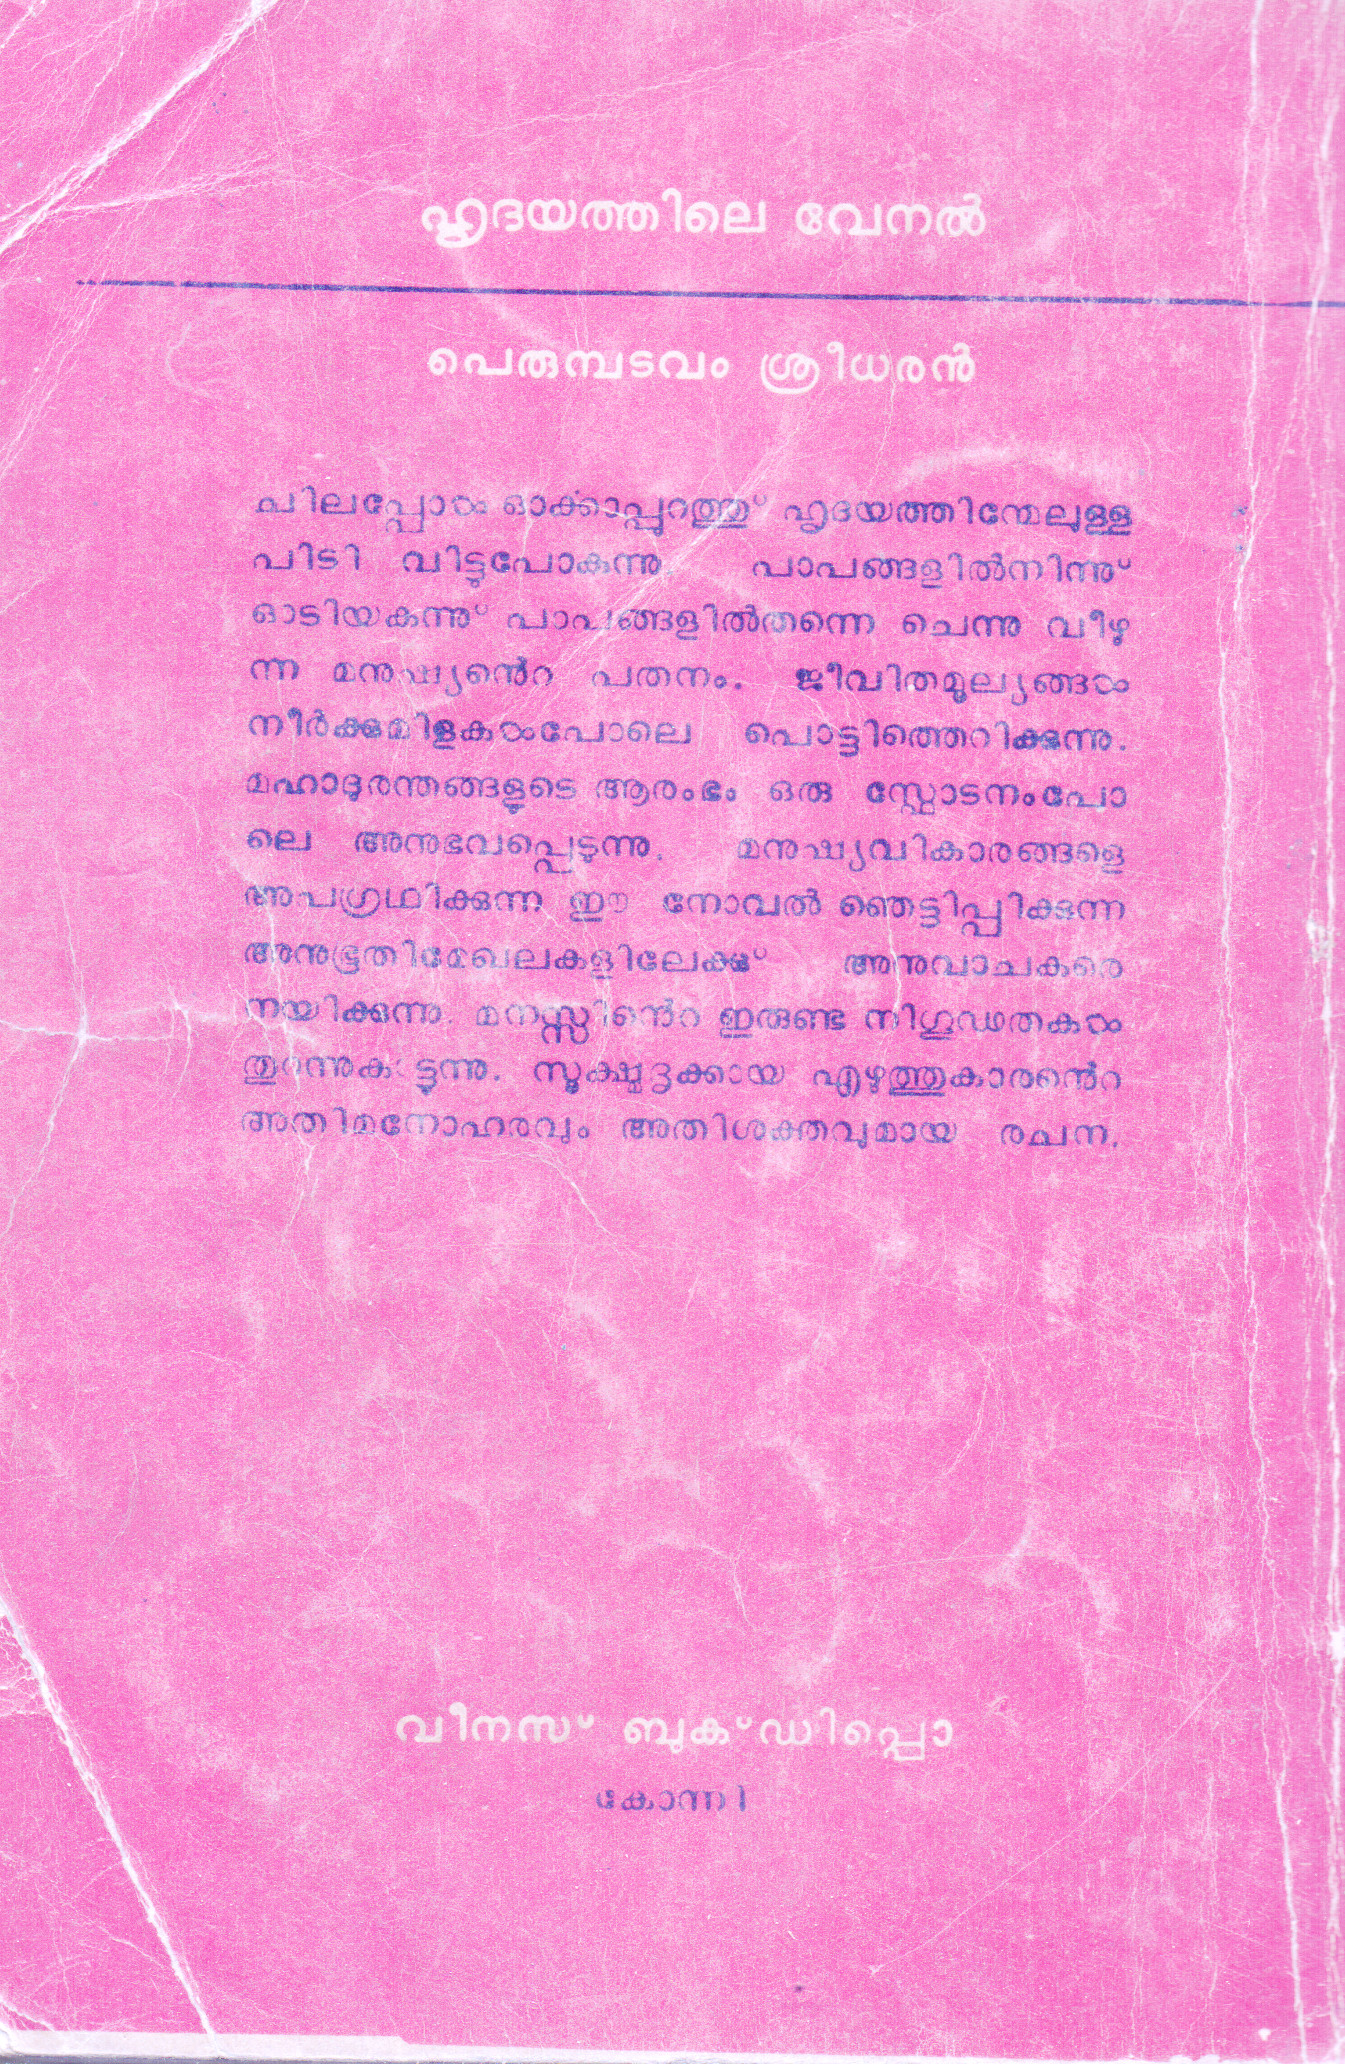 ഹൃദയത്തിലെ വേനൽ
പെരുമ്പടവം ശ്രീധരൻ
ചിലപ്പോൾ ഓർക്കാപ്പുറത്തു് ഹൃദയത്തിന്മേലുള്ള
പിടി വിട്ടുപോകുന്നു പാപങ്ങളിൽനിന്നു്
ഓടിയകന്നു് പാപങ്ങളിൽതന്നെ ചെന്നു വീഴു
ന്ന മനുഷ്യൻെറ പതനം. ജീവിതമൂല്യങ്ങൾ
നീർക്കുമിളകൾപോലെ പൊട്ടിത്തെറിക്കുന്നു.
മഹാദുരന്തങ്ങളുടെ ആരംഭം ഒരു സ്ഫോടനംപോ
ലെ അനുഭവപ്പെടുന്നു. മനുഷ്യവികാരങ്ങളെ
അപഗ്രഥിക്കുന്ന ഈ നോവൽ ഞെട്ടിപ്പിക്കുന്ന
അനുഭൂതിമേഖലകളിലേക്കു് അനുവാചകരെ
നയിക്കുന്നു. മനസ്സിൻെറ ഇരുണ്ട നിഗൂഢതകൾ
തുറന്നുകാട്ടുന്നു. സൂക്ഷ്മദൃക്കായ എഴുത്തുകാരൻെറ
അതിമനോഹരവും അതിശക്തവുമായ രചന.
വീനസ് ബുക്ഡിപ്പൊ
കോന്നി